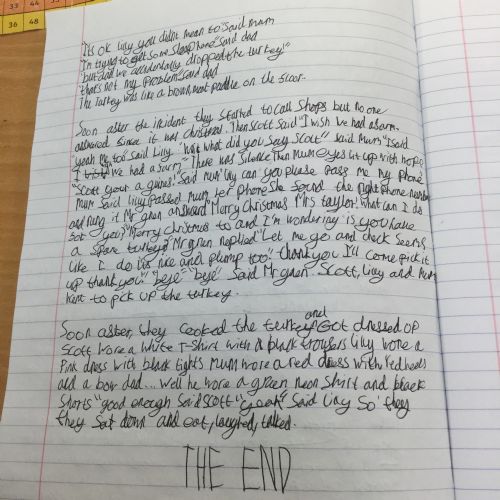 33 44
36 48
"It's ok Lily you didn't mean to" said mum
"I'm trying to get some sleep here" said dad
"but dad we accidentally dropped the turkey!"
"that's not my problem" said dad
The turkey was like a brown meat puddle on the floor.
Soon after the incident they started to call shops but no one
answered since it was christmas. Then Scott said "I wish we had a farm.
yeah me too" said Lily. "Wait what did you say Scott" said Mum "I said
I wish we had a farm" There was silence Then Mum eyes lit up with hope
"Scott your a genius" Said mum "Lily can you please pass me my phone"
Mum said Lily passed mum her phone she found the right phone number
and rung it Mr green answered "Merry Christmas Mrs taylor what can I do
for you?" Merry Christmas to and I'm wondering is you have
a spare turkey" Mr green replied "Let me go and check seems
like I do its nice and plump too." thank you I'll come pick it
up thank you" "beye" "beye" Said Mr green. Scott, Lily and Mum
went to pick up the turkey.
Soon after, they cooked the turkey and Got dressed up
Scott wore a white T-shirt with a black trousers Lily wore a
Pink dress with black tights Mum wore a red dress with red heels
add a bow dad... Well he wore a green neon shirt and black
shorts "good enough Said Scott" "yeah" Said Lily So they
they Sat down and eat, laughed, talked.
THE END